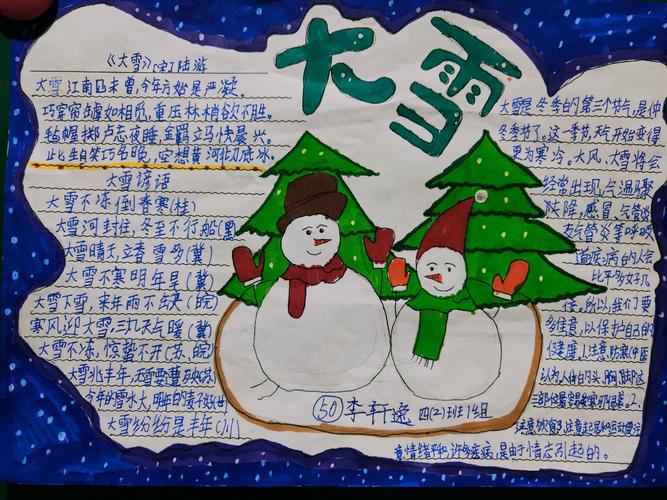 大雪
《大雪》(宋)陆游
大雪江南见未曾,今年方始是严凝。
巧穿帘罅如相觅,重压林梢欲不胜。
毡幄掷卢忘夜睡,金羁立马怯晨兴。
此生自笑功名晚,空想黄河彻底冰。
大雪谚语
大雪不冻倒春寒(桂)
大雪河封住,冬至不行船(黑)
大雪晴天,立春雪多(冀)
大雪不寒明年旱(冀)
大雪下雪,来年雨不缺(皖)
寒风迎大雪,三九天气暖(冀)
大雪不冻,惊蛰不开(苏、皖)
大雪兆丰年,无雪要遭
今年的雪水大,明年的麦子好
大雪纷纷是丰年(川)
大雪是冬季的第三个节气,是仲
冬季节了。这一季节,天气开始变得
更为寒冷。大风、大雪将会
经常出现,气温骤
跌降,感冒、气管炎
支气管炎等呼吸
道疾病的人会
比平多好几
倍。所以,我们要
多注意,以保护自己的
健康。1.注意防寒中医
认为人体的头、胸、脚这
三部位最容易受寒
注意饮食3.注意起居和运动要注
意情绪平和,许多疾病,是由于情志引起的。
50 李轩逸 四(2)班14组